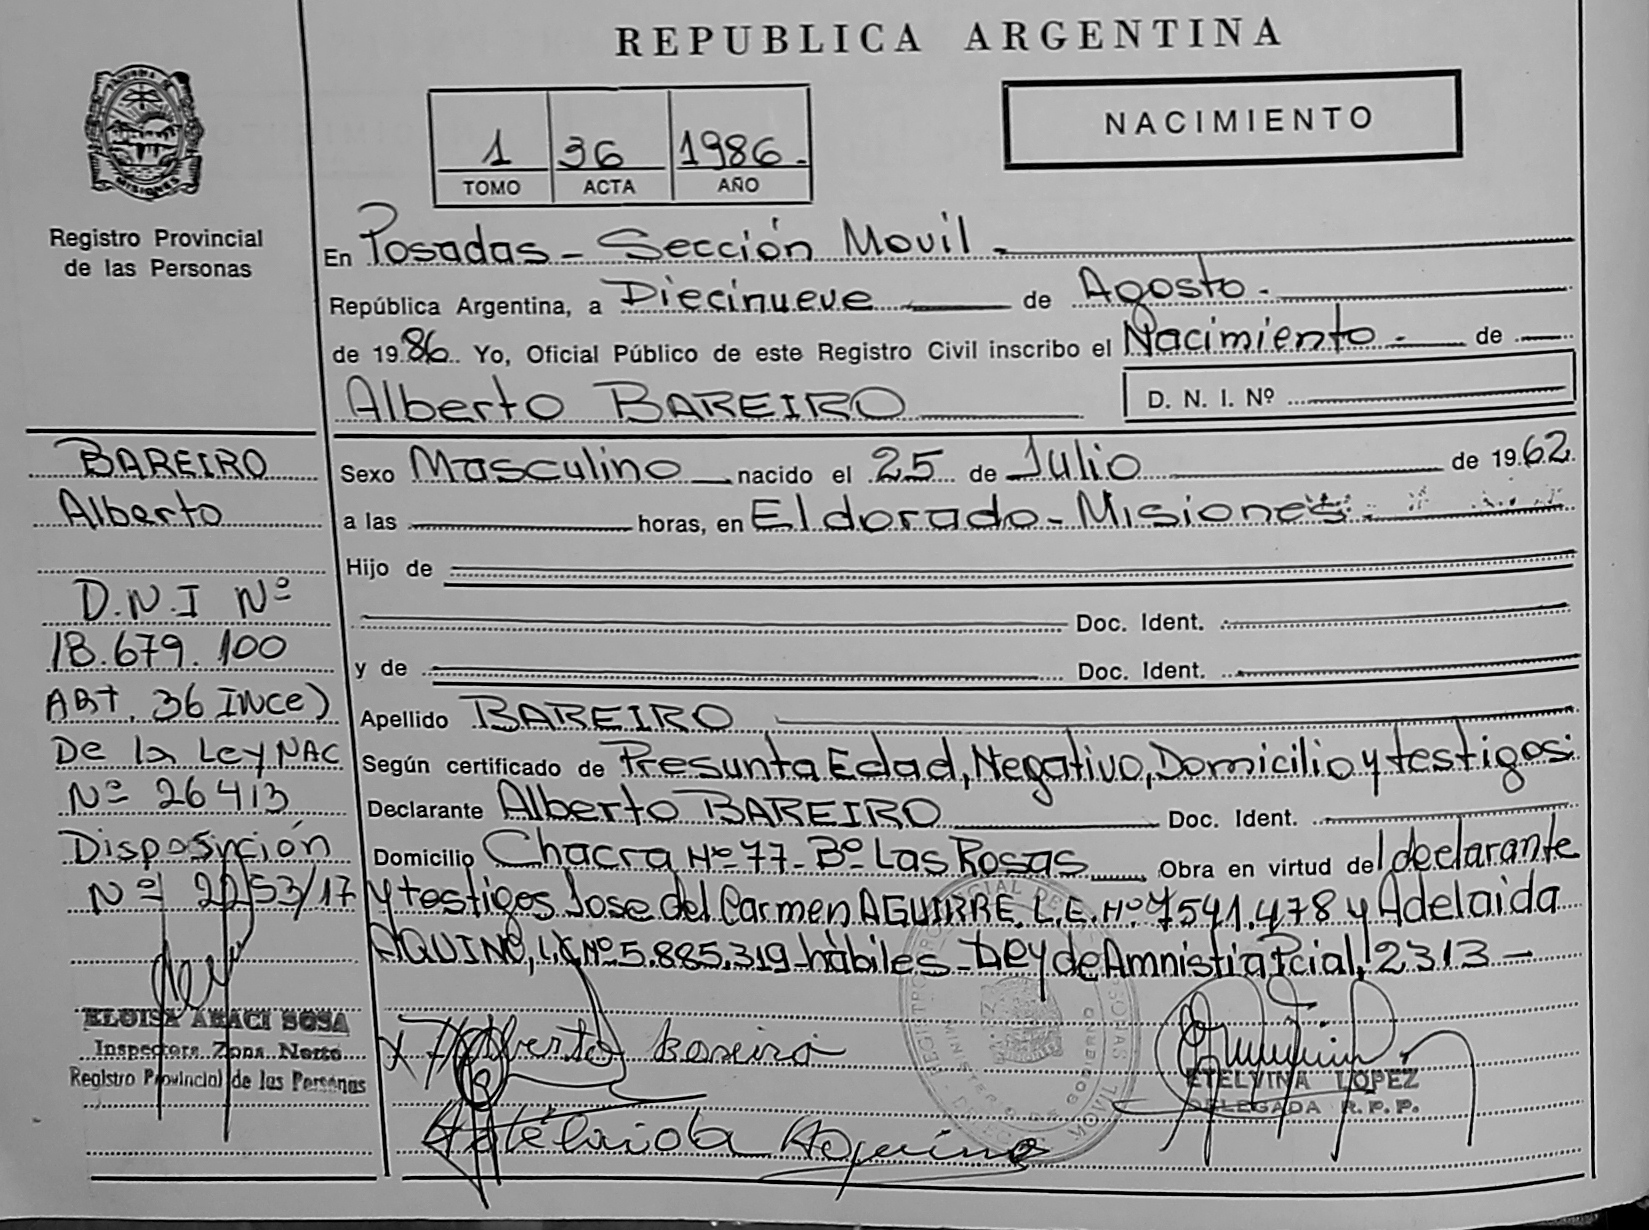 REPUBLICA ARGENTINA
MISIONES
Registro Provincial
de las Personas
1 36 1986.
TOMO ACTA AÑO
NACIMIENTO
En Posadas - Sección Movil -
República Argentina, a Diecinueve de Agosto.
de 1986. Yo, Oficial Público de este Registro Civil inscribo el Nacimiento. de
Alberto BAREIRO
D. N. I. Nº
Sexo Masculino nacido el 25 de Julio de 1962.
a las horas, en Eldorado - Misiones.
Hijo de
Doc. Ident.
y de Doc. Ident.
Apellido BAREIRO
Según certificado de Presunta Edad, Negativo, Domicilio y testigos.
Declarante Alberto BAREIRO Doc. Ident.
Domicilio Chacra Nº 77 - Bº Las Rosas Obra en virtud del declarante
y testigos Jose del Carmen AGUIRRE L.E. Nº 7541.478 y Adelaida
AQUINO, L.C Nº 5.885.319 - hábiles - Ley de Amnistia Pcial, 2313 -
Alberto Bareiro
Aquino
ETELVINA LOPEZ
DELEGADA R.P.P.
BAREIRO
Alberto
D.N.I Nº
18.679.100
ART. 36 INC e)
De la Ley NAC
Nº 26413
Disposición
Nº 2253/17
ELOISA ARACI SOSA
Inspectora Zona Norte
Registro Provincial de las Personas